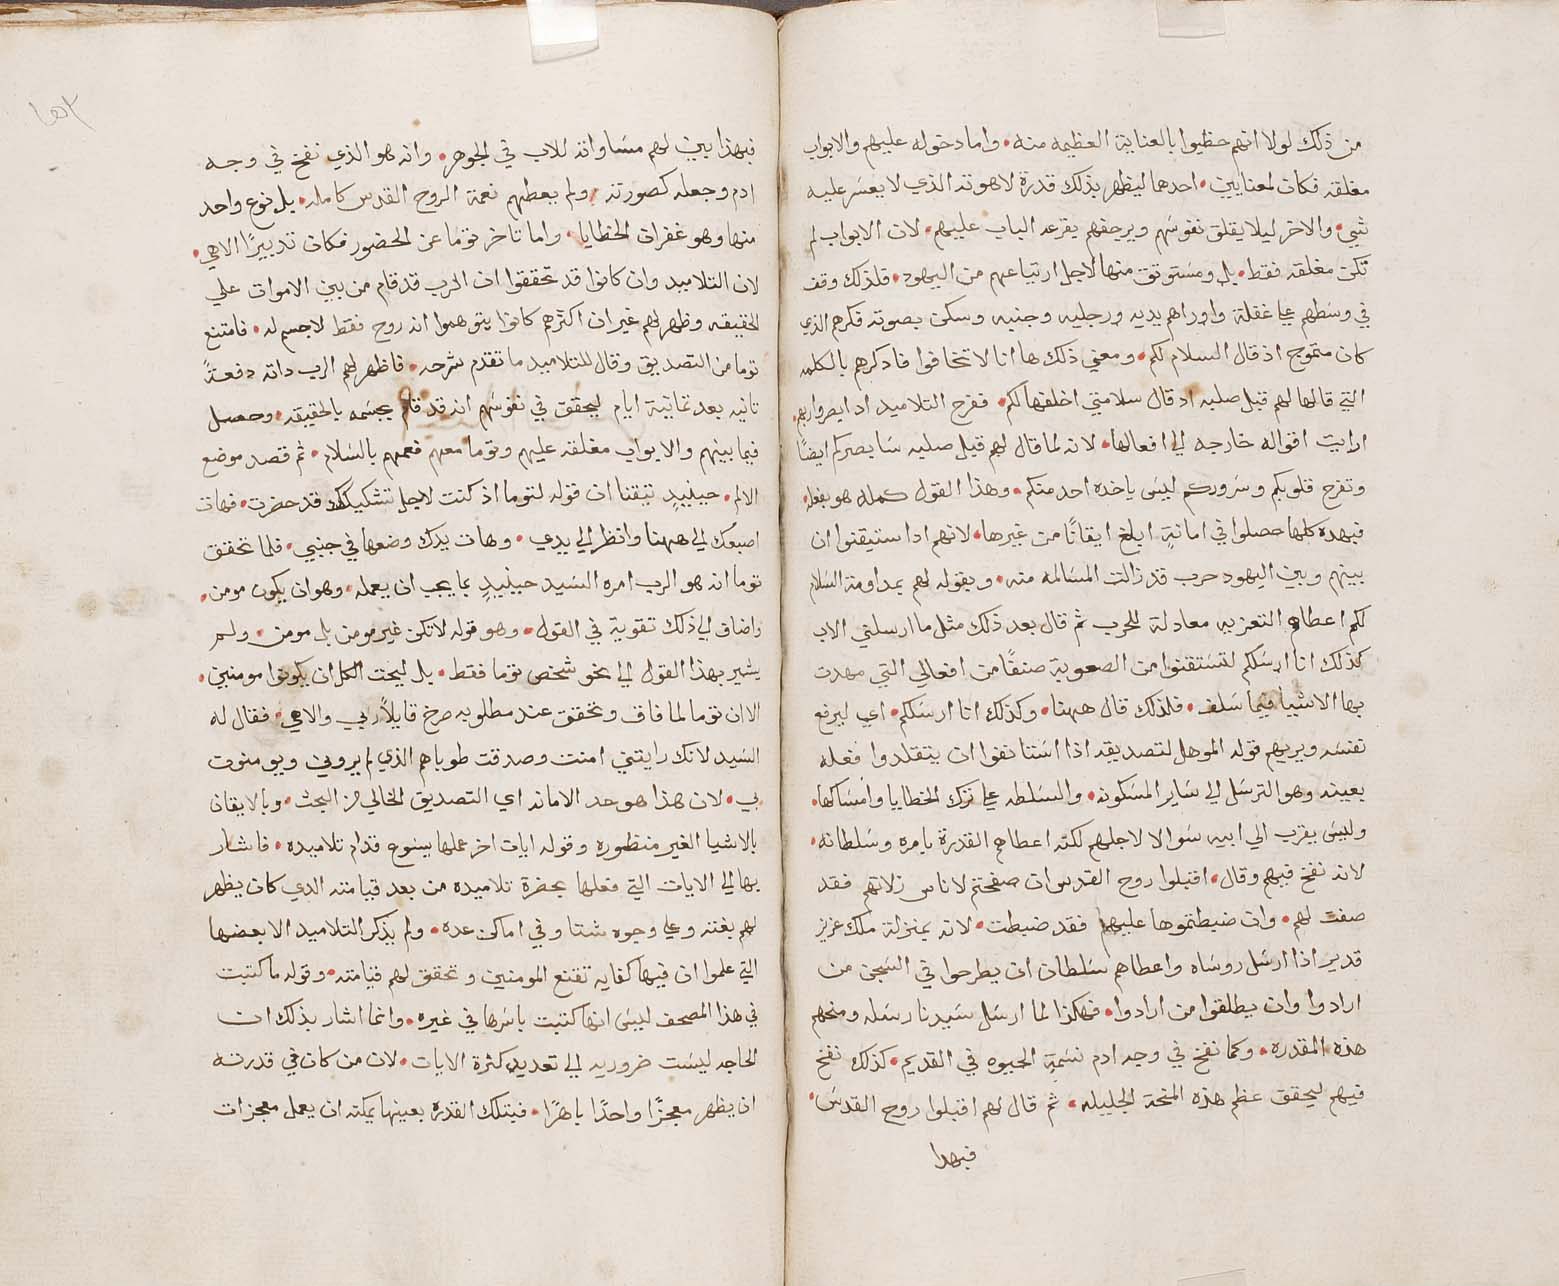 من ذلك لولا انهم حظيوا بالعناية العظيمه منه• واما دخوله عليهم والابواب
مغلقه فكان لمعنايين• احدهما ليظهر بذلك قدرة لاهوته الذي لا يعسر عليه
شي• والاخر ليلا يقلق نفوسهم ويرجفهم بقرعه الباب عليهم• لان الابواب لم
تكن مغلقه فقط• بل ومستوثق منها لاجل ارتياعهم من اليهود• فلذلك وقف
في وسطهم على غفلة واوراهم يديه ورجليه وجنبه وسكن بصوته فكرهم الذي
كان متموج اذ قال السلام لكم• ومعني ذلك ها انا لا تخافوا فادكرهم بالكلمه
التي قالها لهم قبل صلبه اد قال سلامتي اخلفها لكم• ففرح التلاميد اد ابصروا ربهم•
ارايت اقواله خارجه الي افعالها• لانه لما قال لهم قبل صلبه سابصركم ايضًا
وتفرح قلوبكم وسروركم ليس ياخده احد منكم• وهذا القول كمله هو بفعله•
فبهده كلها حصلوا في امانةٍ ابلغ ايقانًا من غيرها• لانهم اذا ستيقنوا ان
بينهم وبين اليهود حرب قد زالت المسالمه منه• وبقوله لهم بمداومة السلام
لكم اعطاهم التعزيه معادلة للحرب ثم قال بعد ذلك مثل ما ارسلني الاب
كذلك انا ارسلكم لتستقنوا من الصعوبة صنفًا من افعالي التي مهدت
بها الاشيا فيما سلف• فلذلك قال ههنا• وكذلك انا ارسلكم• اي ليرفع
نفسه ويريهم قوله الموهل لتصديقه اذا استانفوا ان يتقلدوا فعله
بعينه وهو الترسل الي ساير المسكونه• والسلطه على ترك الخطايا وامساكها•
وليس بقرب الي ابيه سوالا لاجلهم لكنه اعطاهم القدرة بامره وسلطانه•
لانه نفخ فيهم وقال• اقبلوا روح القدس ان صفحتم لاناس زلاتهم فقد
صفت لهم• وان ضبطتموها عليهم فقد ضبطت• لانه بمنزلة ملك عزيز
قدير اذا ارسل روساه واعطاهم سلطان ان يطرحوا في السجن من
ارادوا وان يطلقوا من ارادوا• فهكذا لما ارسل سيدنا رسله ومنحهم
هذه المقدره• وكما نفخ في وجه ادم نسمة الحيوه في القديم• كذلك نفخ
فيهم ليحقق عظم هذه المنحة الجليله• ثم قال لهم اقبلوا روح القدس•
فبهدا
فبهذا يبين لهم مساواته للاب في الجوهر• وانه هو الذي نفخ في وجه
ادم وجعله كصورته• ولم يعطهم نعمة الروح القدس كامله• بل نوع واحد
منها وهو غفران الخطايا• واما تاخر توما عن الحضور فكان تدبيرًا الاهي•
لان التلاميد وان كانوا قد تحققوا ان الرب قد قام من بين الاموات علي
الحقيقه وظهر لهم غير ان اكثرهم كانوا يتوهموا انه روح فقط لا جسم له• فامتنع
توما من التصديق وقال للتلاميد ما تقدم شرحه• فاظهر لهم الرب داته دفعةً
تانيه بعد تمانية ايام ليحقق في نفوسهم انه قد قام بجسمه بالحقيقه• وحصل
فيما بينهم والابواب مغلقه عليهم وتوما معهم فعمهم بالسلام• ثم قصد موضع
الالم• حينيدٍ تيقنا ان قوله لتوما اذ كنت لاجل تشكيكك قد حضرت• فهات
اصبعك الي ههنا وانظر الي يدي• وهات يدك وضعها في جنبي• فلما تحقق
توما انه هو الرب امره السيد حينيدٍ بما يجب ان يعمله• وهو ان يكون مومن•
واضاف الي ذلك تقوية في القول• وهو قوله لا تكن غير مومن بل مومن• ولم
يشير بهذا القول الي نحو شخص توما فقط• بل ليحث الكل ان يكونوا مومنين•
الا ان توما لما فاق وتحقق عند مطلوبه صرخ قايلاً ربي والاهي• فقال له
السيد لانك رايتني امنت وصدقت طوباهم الذي لم يروني ويومنون
بي• لان هذا هو حد الامانه اي التصديق الخالي من البحث• وبالايقان
بالاشيا الغير منظوره وقوله ايات اخر عملها يسوع قدام تلاميده• فاشار
بها الي الايات التي فعلها بحضرة تلاميده من بعد قيامته الدي كان يظهر
لهم بغته وعلى وجوه شتا وفي اماكن عده• ولم يذكر التلاميد الا بعضها
التي علموا ان فيها كفايه تقنع المومنين وتحقق لهم قيامته• وقوله ما كتبت
في هذا المصحف ليس انها كتبت باسرها في غيره• وانما اشار بذلك ان
الحاجه ليست ضروريه الي تعديد كثرة الايات• لان من كان في قدرته
ان يظهر معجزًا واحدًا باهرًا• فبتلك القدره بعينها يمكنه ان يعمل معجزات